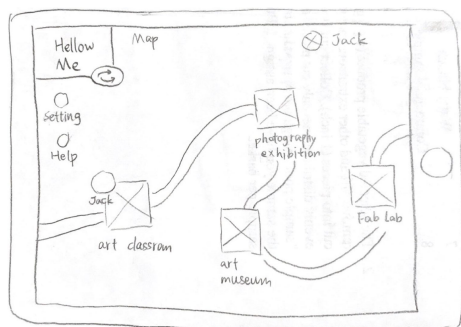 Hellow
Me
Map
Jack
Setting
Help
Jack
art classrom
photography
exhibition
art
museum
Fab Lab